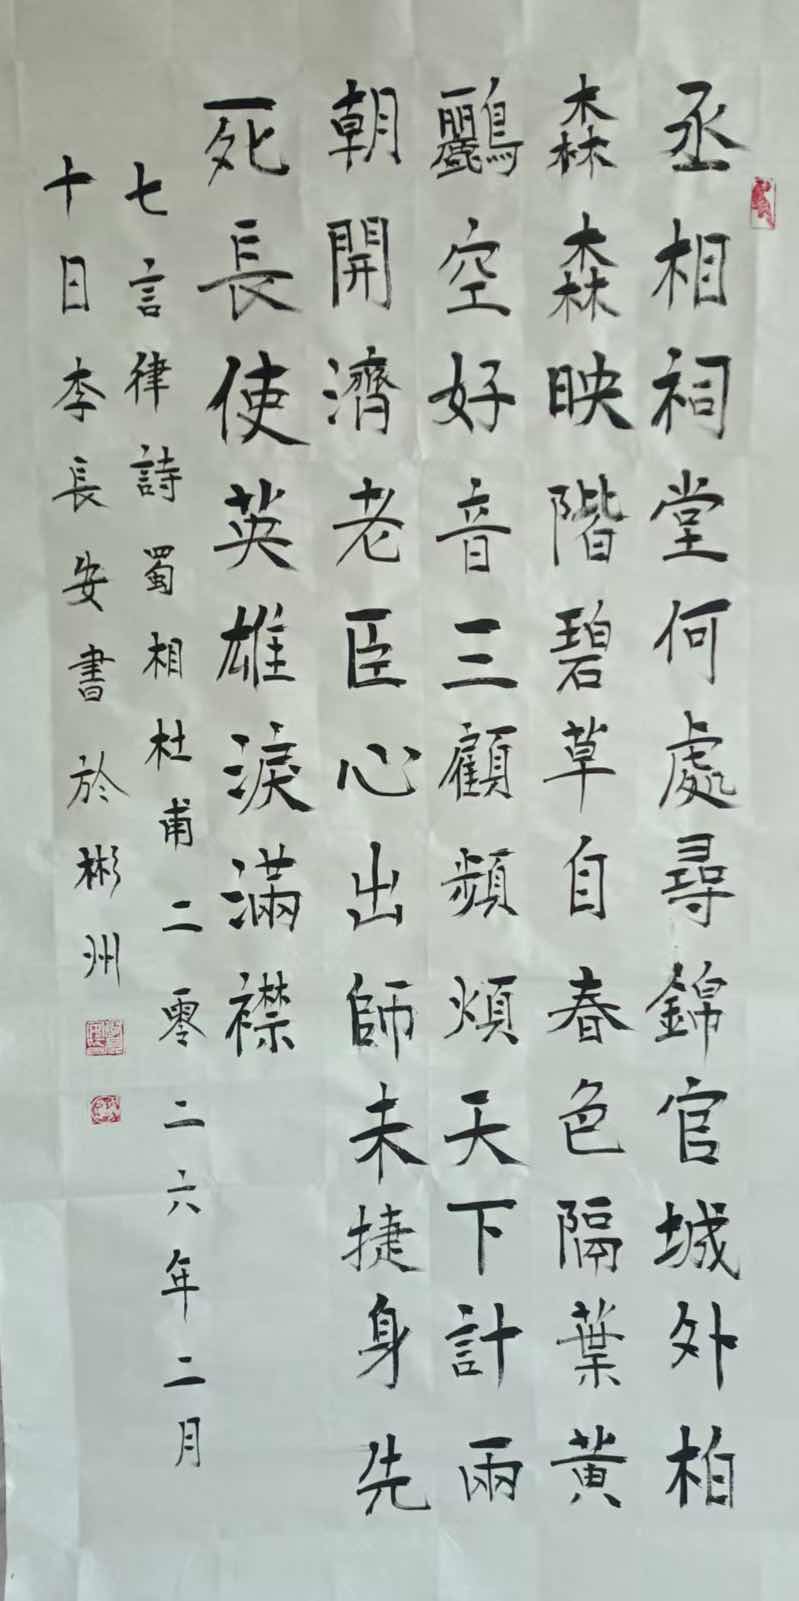 丞相祠堂何處尋錦官城外柏
森森映階碧草自春色隔葉黃
鸝空好音三顧頻煩天下計兩
朝開濟老臣心出師未捷身先
死長使英雄淚滿襟
七言律詩蜀相杜甫二零二六年二月
十日李長安書於彬州